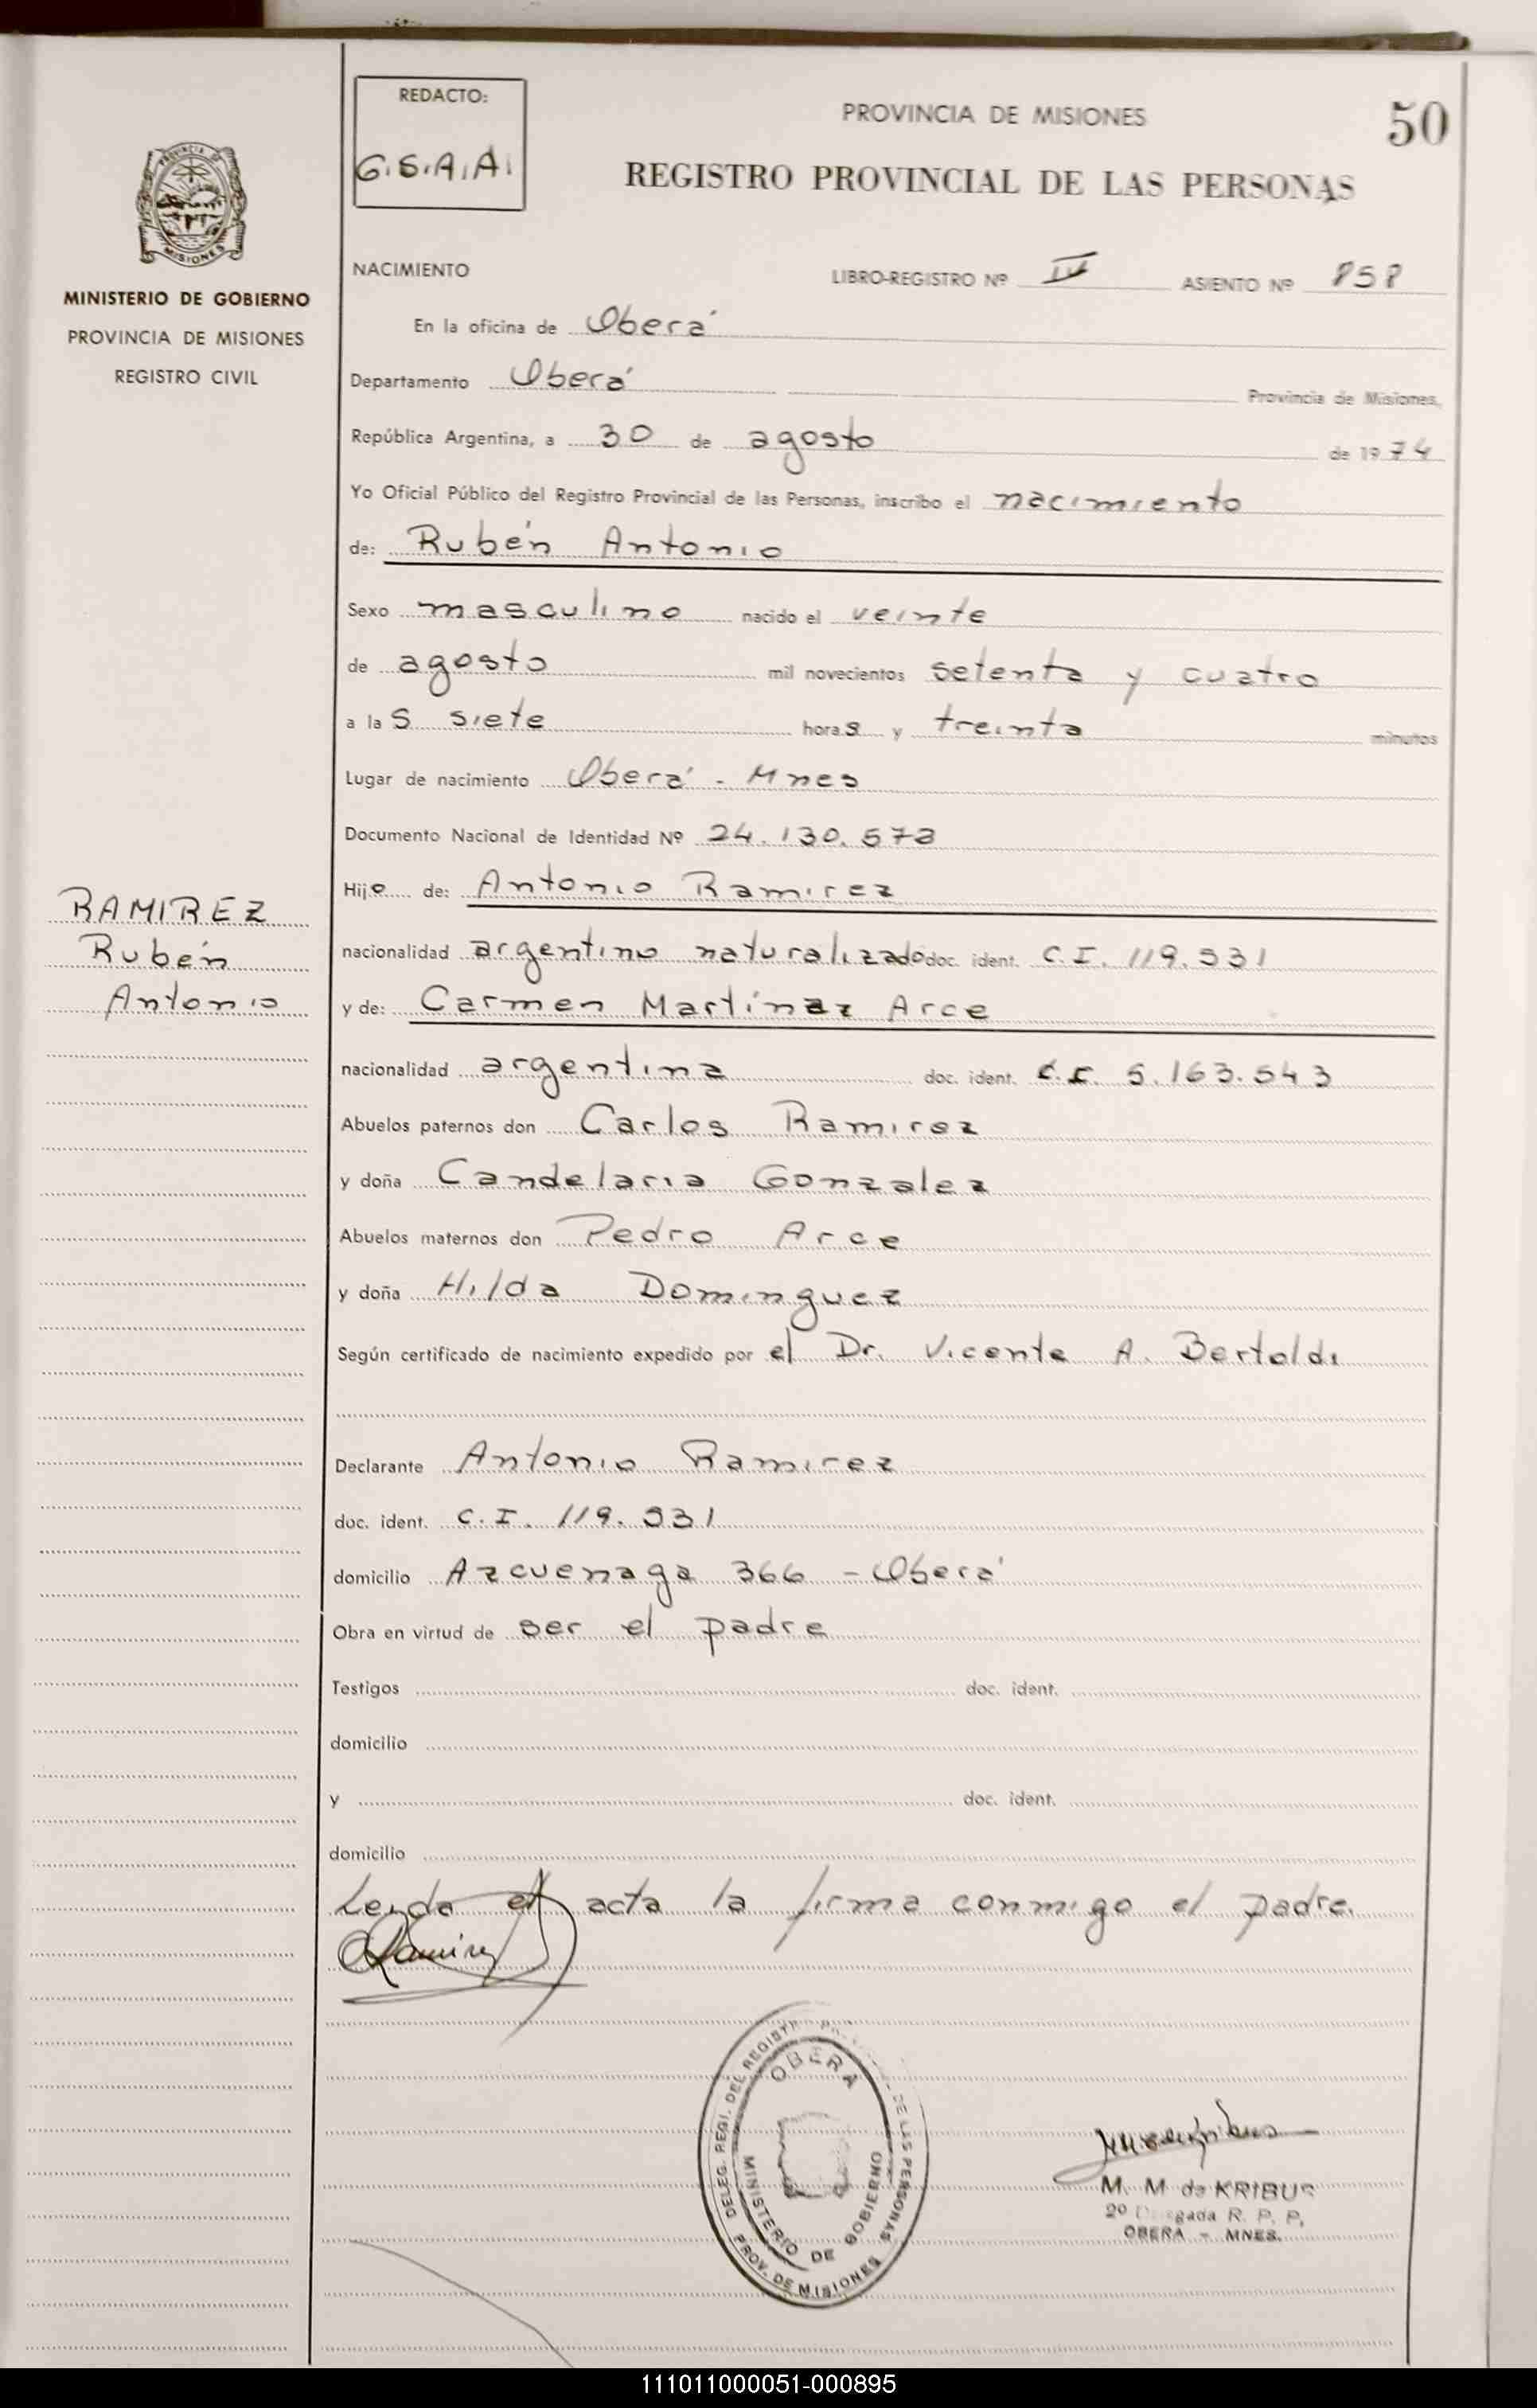 REDACTO:
G.S.A.A.
PROVINCIA DE MISIONES
50
REGISTRO PROVINCIAL DE LAS PERSONAS
MINISTERIO DE GOBIERNO
PROVINCIA DE MISIONES
REGISTRO CIVIL
NACIMIENTO LIBRO-REGISTRO Nº IV ASIENTO Nº 858
En la oficina de Oberá
Departamento Oberá Provincia de Misiones,
República Argentina, a 30 de agosto de 1974
Yo Oficial Público del Registro Provincial de las Personas, inscribo el nacimiento
de: Rubén Antonio
Sexo masculino nacido el veinte
de agosto mil novecientos setenta y cuatro
a las siete horas y treinta minutos
Lugar de nacimiento Oberá - Mnes
Documento Nacional de Identidad Nº 24.130.573
Hijo de: Antonio Ramirez
RAMIREZ
Rubén
Antonio
nacionalidad argentino naturalizado doc. ident. C.I. 119.931
y de: Carmen Martínez Arce
nacionalidad argentina doc. ident. 5.163.543
Abuelos paternos don Carlos Ramirez
y doña Candelaria Gonzalez
Abuelos maternos don Pedro Arce
y doña Hilda Dominguez
Según certificado de nacimiento expedido por el Dr. Vicente A. Bertoldi
Declarante Antonio Ramirez
doc. ident. C.I. 119.931
domicilio Azcuenaga 366 - Oberá
Obra en virtud de ser el padre
Testigos doc. ident.
domicilio
y doc. ident.
domicilio
Leida el acta la firma conmigo el padre.
Ramirez
OBERA
DELEG. REGI. DEL REGISTR DE LAS PERSONAS
MINISTERIO DE GOBIERNO
PROV. DE MISIONES
M. M de KRIBUS
2º R. P. P.
OBERA - MNES.
111011000051-000895